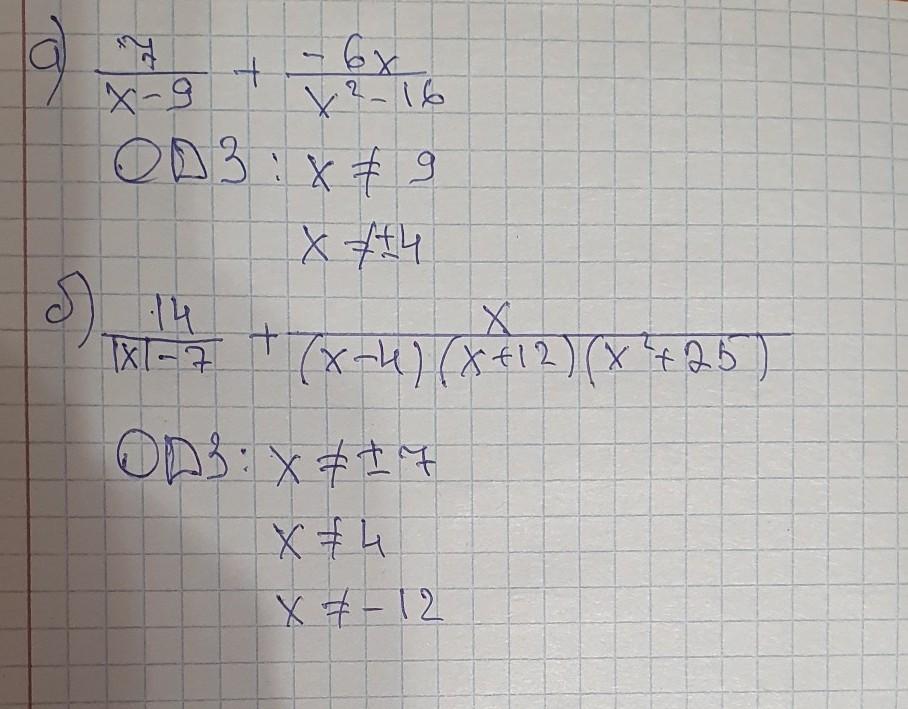 а) 7/(x-9) + -6x/(x²-16)
ОДЗ: x ≠ 9
x ≠ ±4
б) 14/(|x|-7) + x/((x-4)(x+12)(x²+25))
ОДЗ: x ≠ ±7
x ≠ 4
x ≠ -12